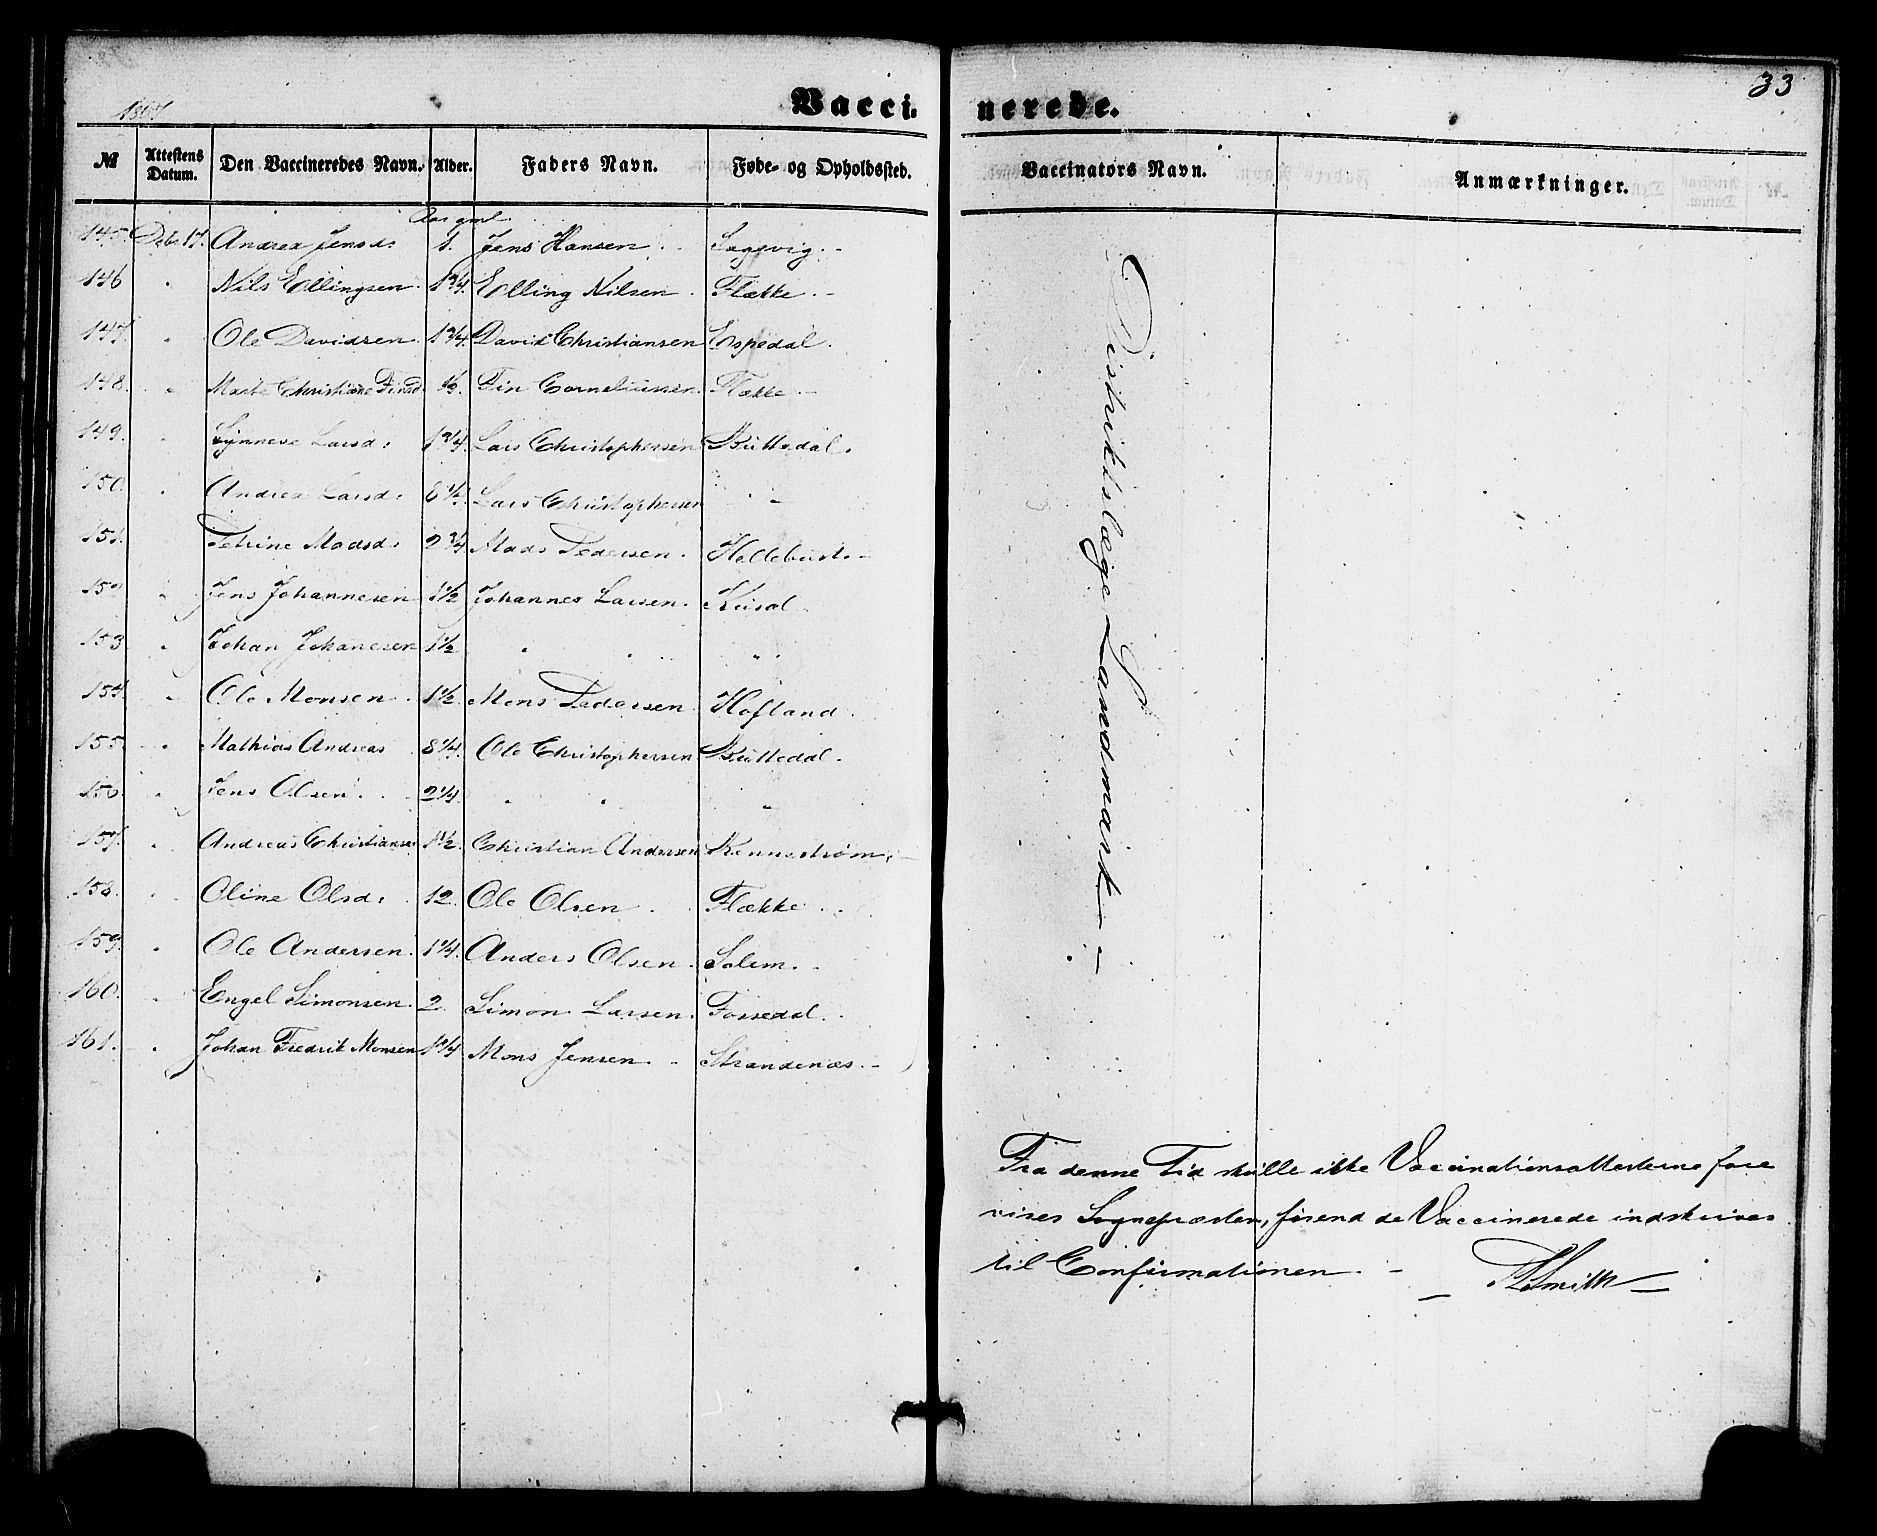 33
Vaccinerede.
№ Attestens Datum. Den Vaccineredes Navn. Alder. Faders Navn. Føde- og Opholdssted. Vaccinators Navn. Anmærkninger.
Aar gml.
145. Debr 17. Andrea Jensd: 1. Jens Hansen Saggvig. -
146 " Nils Ellingsen 1 3/4. Elling Nilsen. Flekke. -
147. " Ole Davidsen. 1 3/4. David Christiansen Espedal.
148. " Christiane Finsd. Fin Corneliussen. Flekke. -
149. " Synneve Larsd: 1 3/4. Lars Christophersen Buttedal.
150. " Andrea Larsd. Lars Christophersen " -
151. Petrine Madsd: 2 3/4 Mads Pedersen. Hellebust. -
152 " Jens Johannesen 1 1/2 Johannes Larsen.
153 " Johan Johanesen 1 1/2 " " " "
154. " Ole Monsen 1 1/2 Mons Pedersen Hofland.
155. " Mathias Andreas 8 1/4. Ole Christophersen Buttedal.
156. " Jens Olsen. 2 1/4. " " "
157. " Andreas Christiansen Christian Andersen Rennestrøm. -
158. " Oline Olsd. 12. Ole Olsen Flekke.
159. " Ole Andersen. 1 1/4. Anders Olsen. Solem. -
160. " Engel Simonsen. 2. Simon Larsen. Fossedal.
161. " Johan Fredrik Monsen 1 3/4 Mons Jensen. - Strandenæs. -
Distriktslæge Landmark -
Fra denne Tid skulle ikke Vaccinationsattesterne fore
vises Sognepræsten, førend de Vaccinerede indskrives
til Confirmationen. -
Smith